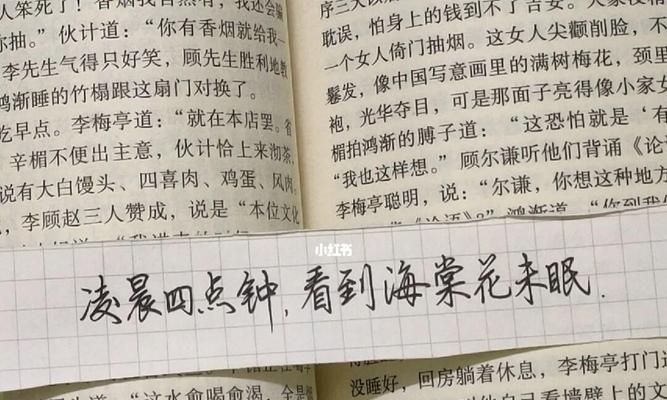 人笨死了！香烟我自然有，我还会骗
你抽。”伙计道：“你有香烟就给我一
李先生气得只好笑，顾先生胜利地教
鸿渐睡的竹榻跟这扇门对换了。
吃早点。李梅亭道：“就在本店罢。省
辛楣不便出主意，伙计恰上来沏茶、
说有大白馒头、四喜肉、鸡蛋、风肉。
李顾赵三人赞成，说是“本位文化
耽误，怕身上的钱到不了吉安。大家没精
一个女人倚门抽烟。这女人尖颧削脸，不
鬈发，像中国写意画里的满树梅花，颈里
袍，光华夺目，可是那面子亮得像小家女
楣拍鸿渐的膊子道：“这恐怕就是‘有
“我也这样想。”顾尔谦听他们背诵《论
李梅亭聪明，说：“尔谦，你想这种地方
小红书
凌晨四点钟，看到海棠花未眠.
道：“这水愈喝愈渴，全是
没睡好，回房躺着休息，李梅亭打门进
自己看墙壁上的文